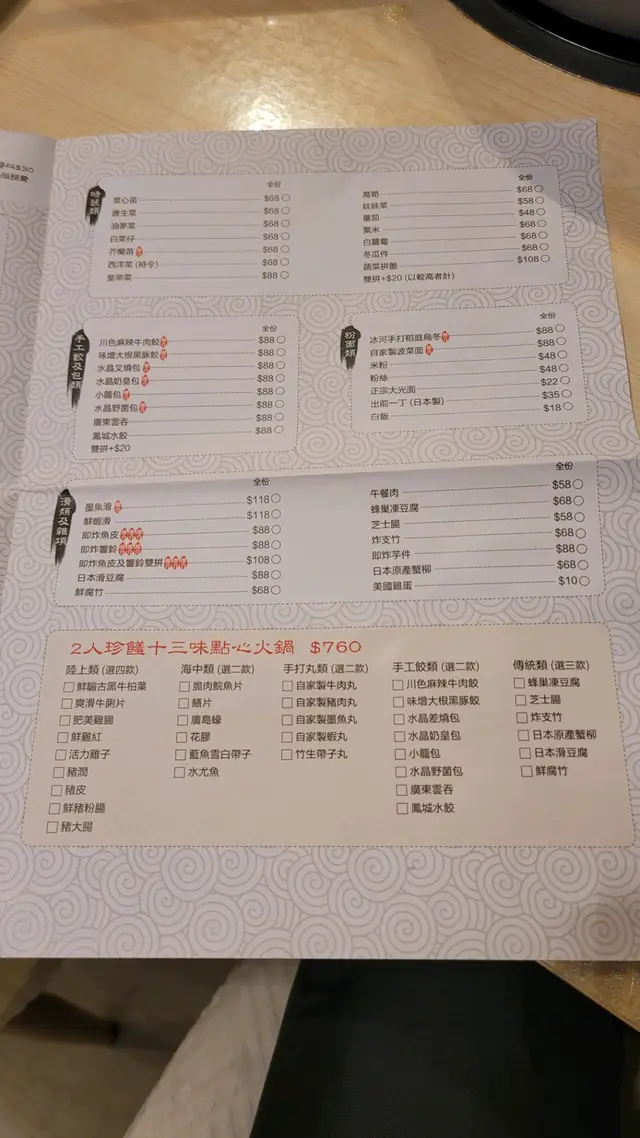 時蔬類
全份
菜心苗 $68
唐生菜 $68
油麥菜 $68
白菜仔 $68
芥蘭苗 $68
西洋菜 (時令) $68
皇帝菜 $88
全份
萵筍 $68
娃娃菜 $58
番茄 $48
粟米 $68
白蘿蔔 $68
冬瓜件 $68
蔬菜拼盤 $108
雙拼+$20 (以較高者計)
手工餃及包類
全份
川色麻辣牛肉餃 $88
味增大根黑豚餃 $88
水晶叉燒包 $88
水晶奶皇包 $88
小籠包 $88
水晶野菌包 $88
廣東雲吞 $88
鳳城水餃 $88
雙拼+$20
粉面類
全份
冰河手打稻庭烏冬 $88
自家製菠菜面 $88
米粉 $48
粉絲 $48
正宗大光面 $22
出前一丁 (日本製) $35
白飯 $18
滑類及雜項
全份
墨魚滑 $118
鮮蝦滑 $118
即炸魚皮 $88
即炸響鈴 $88
即炸魚皮及響鈴雙拼 $108
日本滑豆腐 $88
鮮腐竹 $68
全份
午餐肉 $58
蜂巢凍豆腐 $68
芝士腸 $58
炸支竹 $68
即炸芋件 $88
日本原產蟹柳 $68
美國雞蛋 $10
2人珍饈十三味點心火鍋 $760
陸上類 (選四款)
鮮騸古黑牛柏葉
爽滑牛脷片
肥美雞腸
鮮雞紅
活力雞子
豬潤
豬皮
鮮豬粉腸
豬大腸
海中類 (選二款)
脆肉鯇魚片
鱔片
廣島蠔
花膠
藍魚雪白帶子
水尤魚
手打丸類 (選二款)
自家製牛肉丸
自家製豬肉丸
自家製墨魚丸
自家製蝦丸
竹生帶子丸
手工餃類 (選二款)
川色麻辣牛肉餃
味增大根黑豚餃
水晶差燒包
水晶奶皇包
小籠包
水晶野菌包
廣東雲吞
鳳城水餃
傳統類 (選三款)
蜂巢凍豆腐
芝士腸
炸支竹
日本原產蟹柳
日本滑豆腐
鮮腐竹